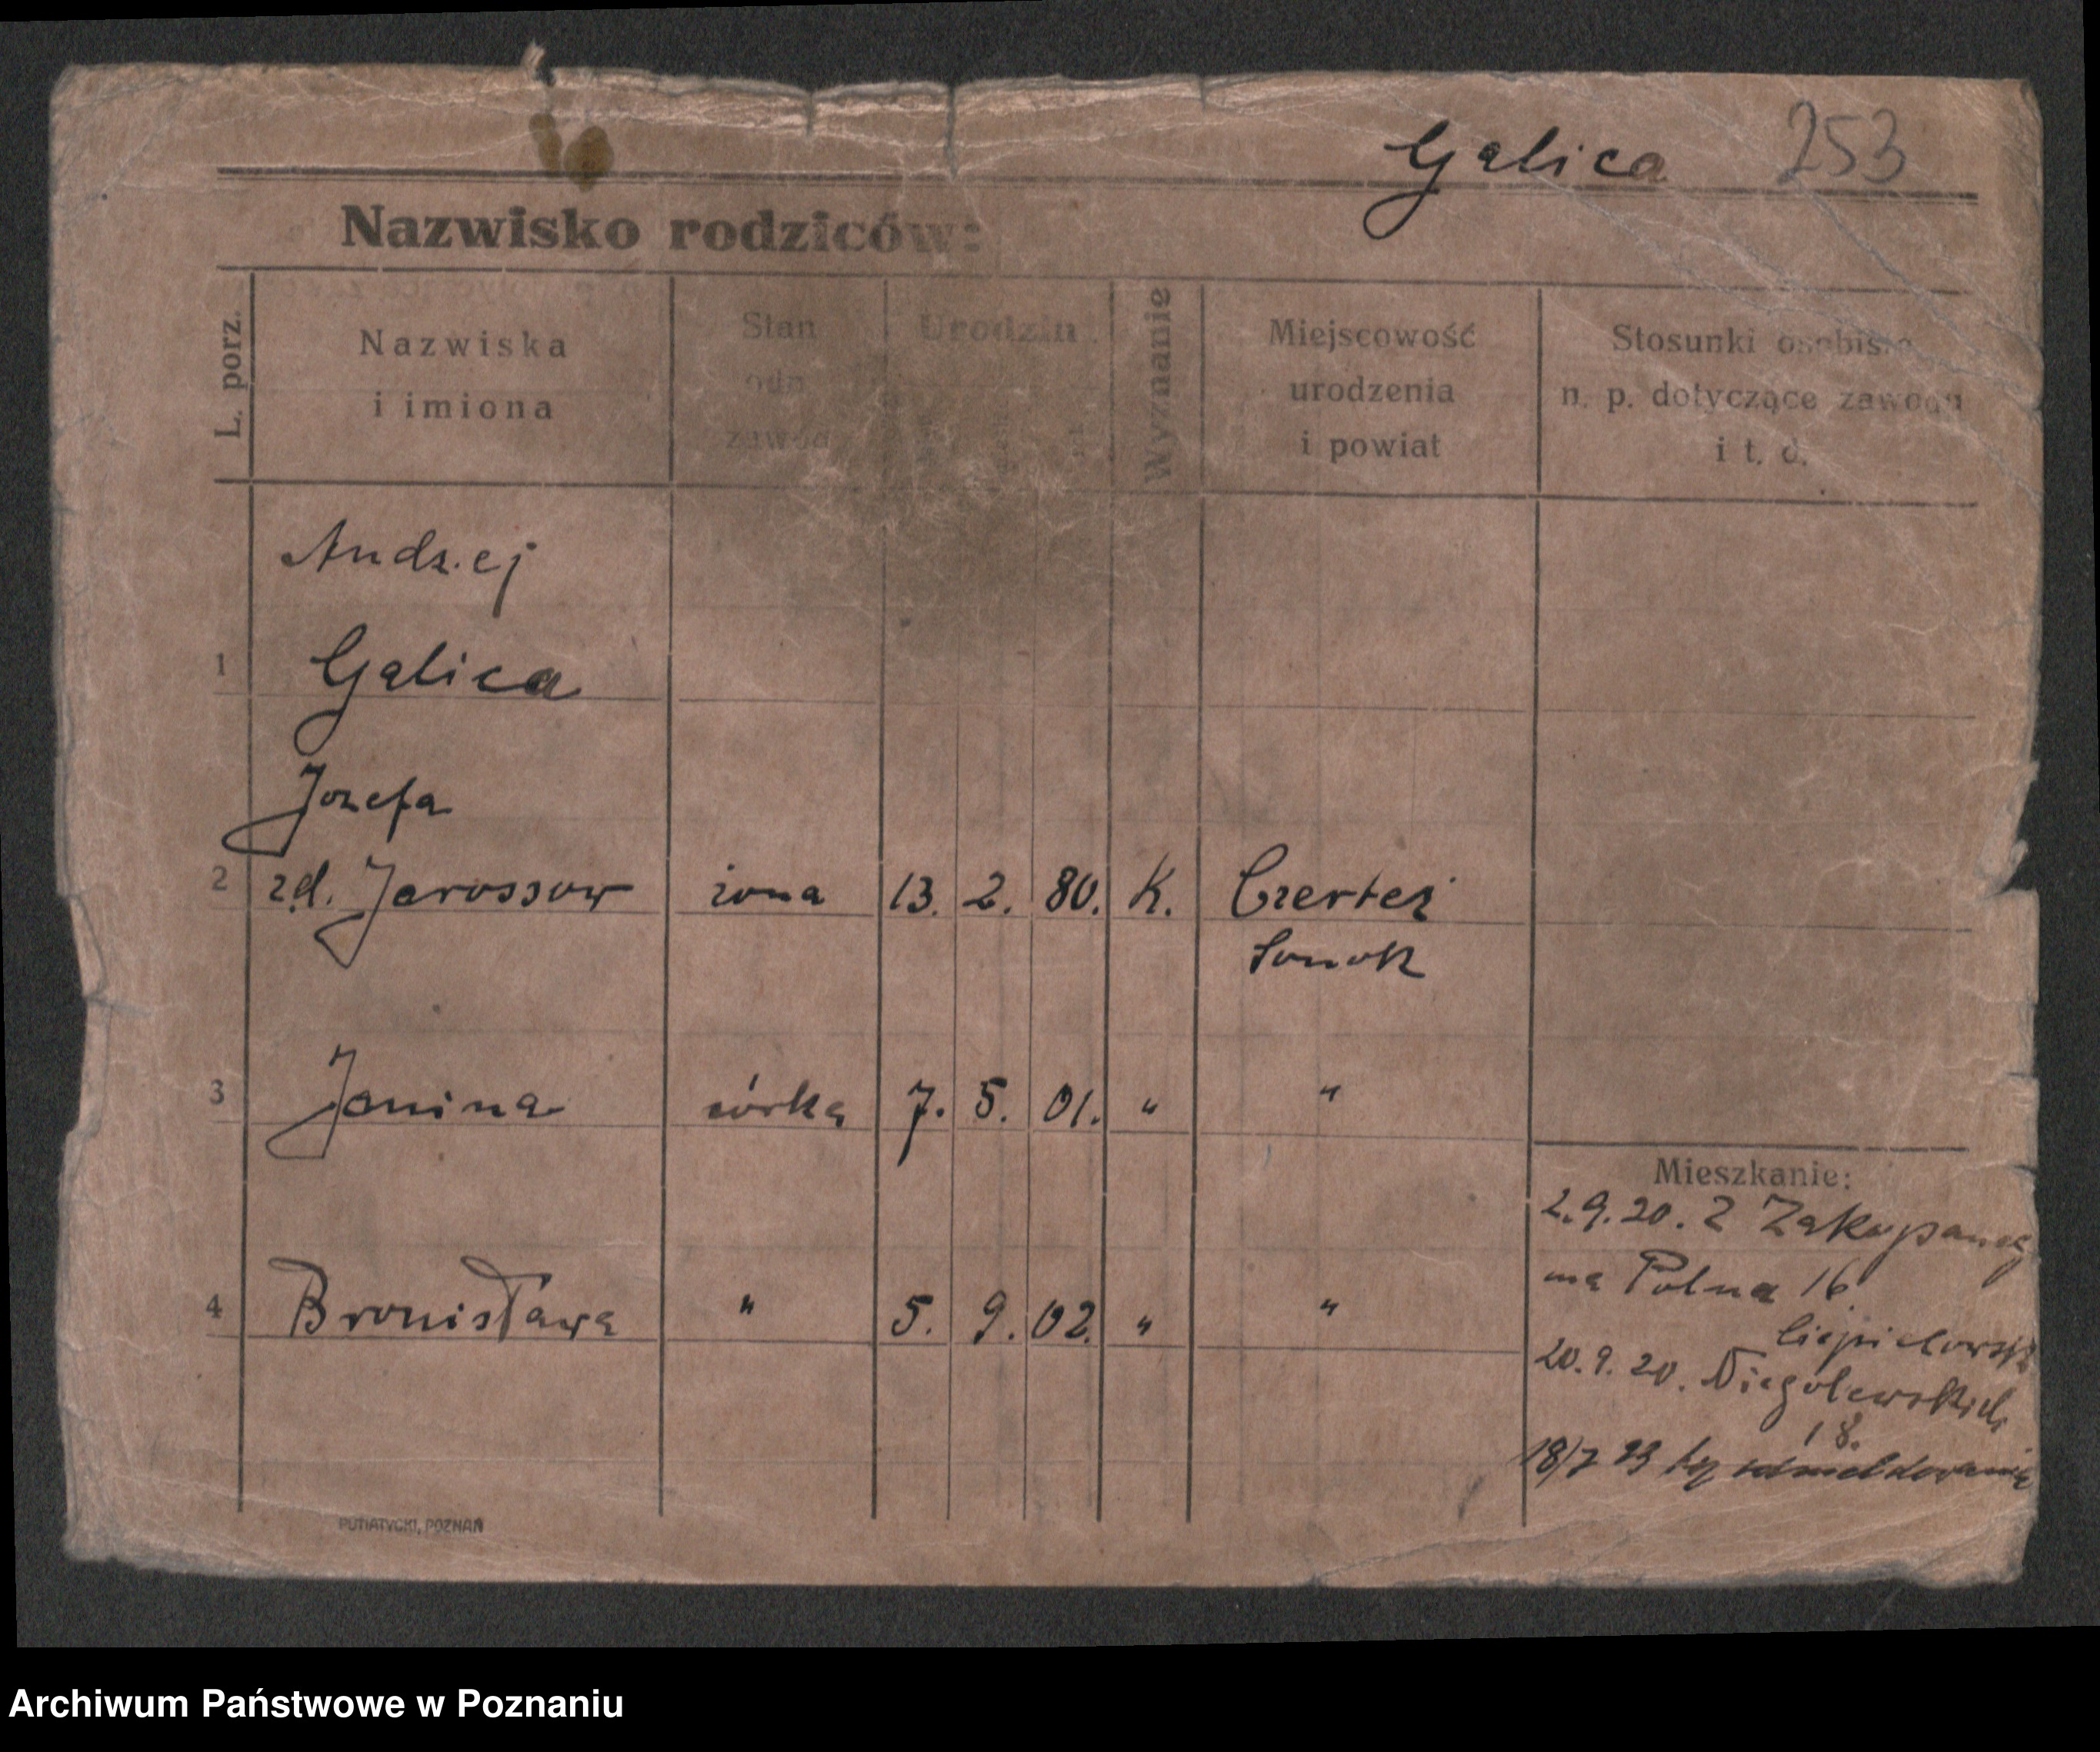 Galica 253
Nazwisko rodziców:
L. porz.
Nazwiska
i imiona
Stan
odn.
zawód
Urodzin
Wyznanie
Miejscowość
urodzenia
i powiat
Stosunki osobiste
n. p. dotyczące zawodu
i t. d.
Andz.ej
1 Galica
Jozefa
2 z.d. Jarossow żona 13. 2. 80. K. Czerteż
Sanok
3 Janina córka 7. 5. 01. " "
Mieszkanie:
2.9.20. Z Zakopanego
na Polna 16.
4 Bronisława " 5. 9. 02. " "
20.9.20. Niegolewskich
18.
18/7 23
PUTIATYCKI, POZNAŃ
Archiwum Państwowe w Poznaniu